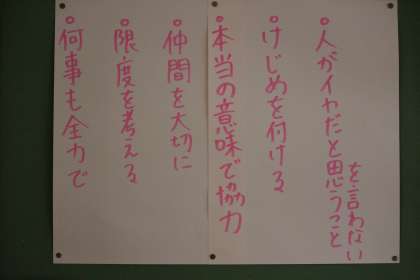 ・人がイヤだと思うこと
を言わない
・けじめを付ける
・本当の意味で協力
・仲間を大切に
・限度を考える
・何事も全力で